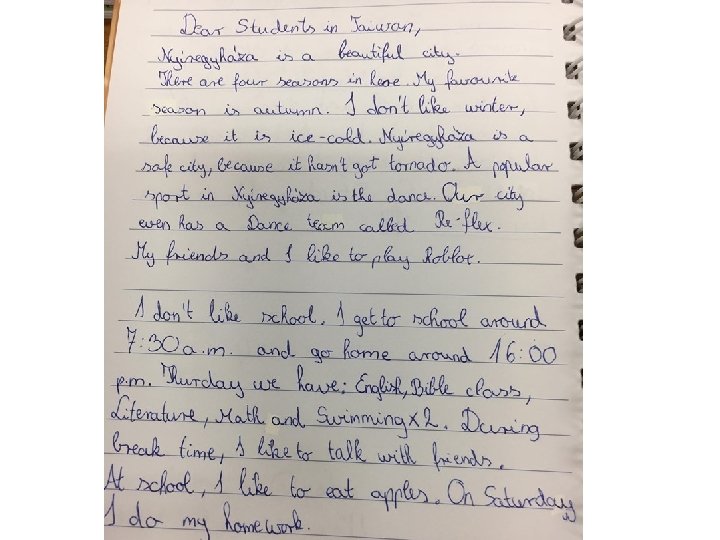 Dear Students in Taiwan,
Nyíregyháza is a beautiful city.
There are four seasons in here. My favourite
season is autumn. I don't like winter,
because it is ice-cold. Nyíregyháza is a
safe city, because it hasn't got tornado. A popular
sport in Nyíregyháza is the dance. Our city
even has a Dance team called Re-flex.
My friends and I like to play Roblox.
I don't like school. I get to school around
7:30 a.m. and go home around 16:00
p.m. Thurday we have: English, Bible class,
Literature, Math and Swimming x 2. During
break time, I like to talk with friends.
At school, I like to eat apples. On Saturday
I do my homework.